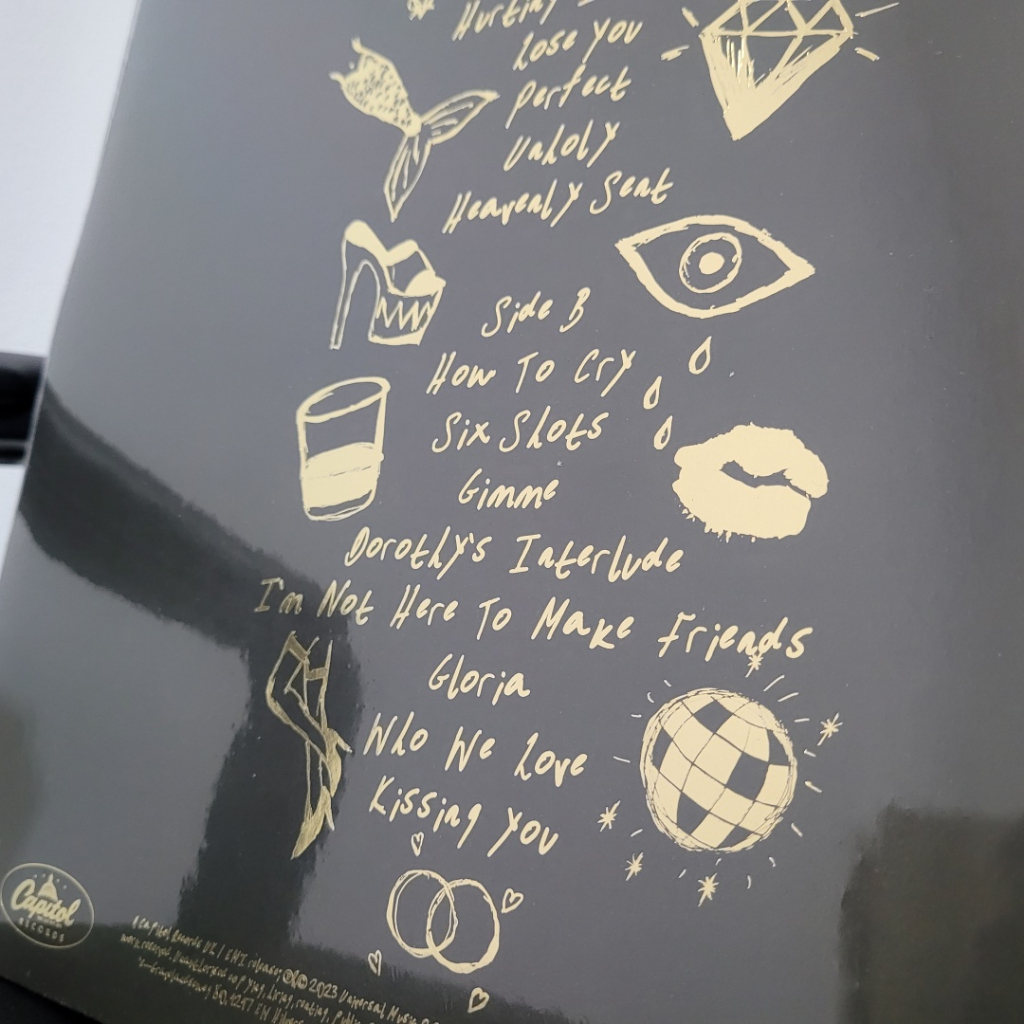 Hurting
Lose You
Perfect
Unholy
Heavenly Sent
Side B
How To Cry
Six Shots
Gimme
Dorothy's Interlude
I'm Not Here To Make Friends
Gloria
Who We Love
Kissing You
Capitol
RECORDS
Capitol Records UK / EMI release; ℗© 2023 Universal Music